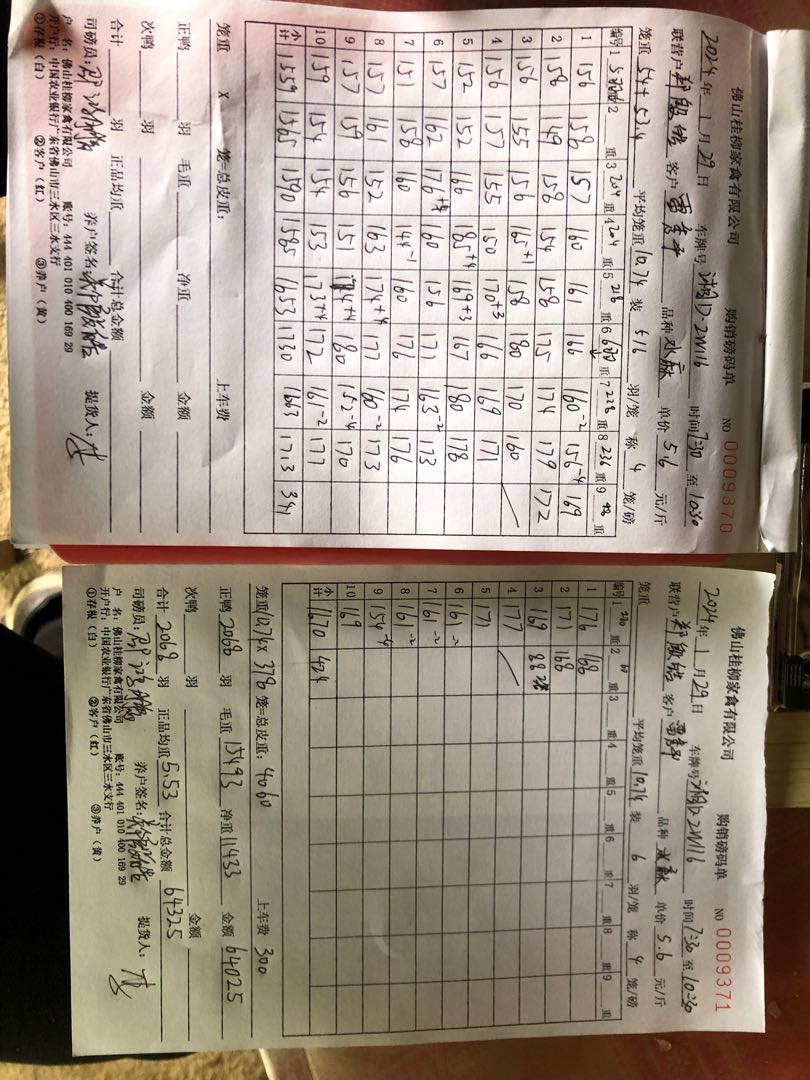 佛山桂柳家禽有限公司 购销磅码单 NO 0009370
2024年1月29日 车牌号 2W116 时间7:30至10:30
联营户 客户 品种 单价5.6元/斤
笼重54+53.4 平均笼重10.74装 5/6羽/笼 称4笼/磅
编号 1 重 2 重 3 204 重 4 204 重 5 218 重 6 重 7 228 重 8 236 重 9 48 重
1 156 158 157 160 161 166 160-2 156-4 169
2 158 149 158 154 158 175 174 179 172
3 156 155 156 165+1 158 180 170 160
4 156 157 155 150 170+3 166 169 171
5 152 152 166 185+4 169+3 167 180 178
6 157 162 176+4 160 156 171 163-2 173
7 151 158 160 144-1 160 176 174 176
8 157 161 152 163 174+4 177 160-2 173
9 157 159 156 151 174+4 180 152-4 170
10 159 154 154 153 173+4 172 161-2 177
小计 1559 1565 1590 1585 1653 1730 1663 1713 341
笼重 X 笼=总皮重: 上车费
正鸭 羽 毛重 净重 金额
次鸭 羽 金额
合计 羽 正品均重 合计总金额
司磅员: 养户签名: 提货人:
户 名:佛山桂柳家禽有限公司 账号:444 401 010 400 169 29
开户行:中国农业银行广东省佛山市三水区三水支行
①存根(白) ②客户(红) ③养户(黄)
佛山桂柳家禽有限公司 购销磅码单 NO 0009371
2024年1月29日 车牌号 2W116 时间7:30至10:30
联营户 客户 品种 单价5.6元/斤
笼重 平均笼重10.74装6羽/笼 称4笼/磅
编号 1 重 2 重 3 重 4 重 5 重 6 重 7 重 8 重 9 重
1 176 168
2 171 168
3 169 88
4 177
5 171
6 161-2
7 161-2
8 161-2
9 154-4
10 169
小计 1670 424
笼重10.74X378笼=总皮重:4060 上车费300
正鸭2068羽 毛重15493 净重11433 金额64025
次鸭 羽 金额
合计2068羽 正品均重5.53 合计总金额64325
司磅员: 养户签名: 提货人:
户 名:佛山桂柳家禽有限公司 账号:444 401 010 400 169 29
开户行:中国农业银行广东省佛山市三水区三水支行
①存根(白) ②客户(红) ③养户(黄)